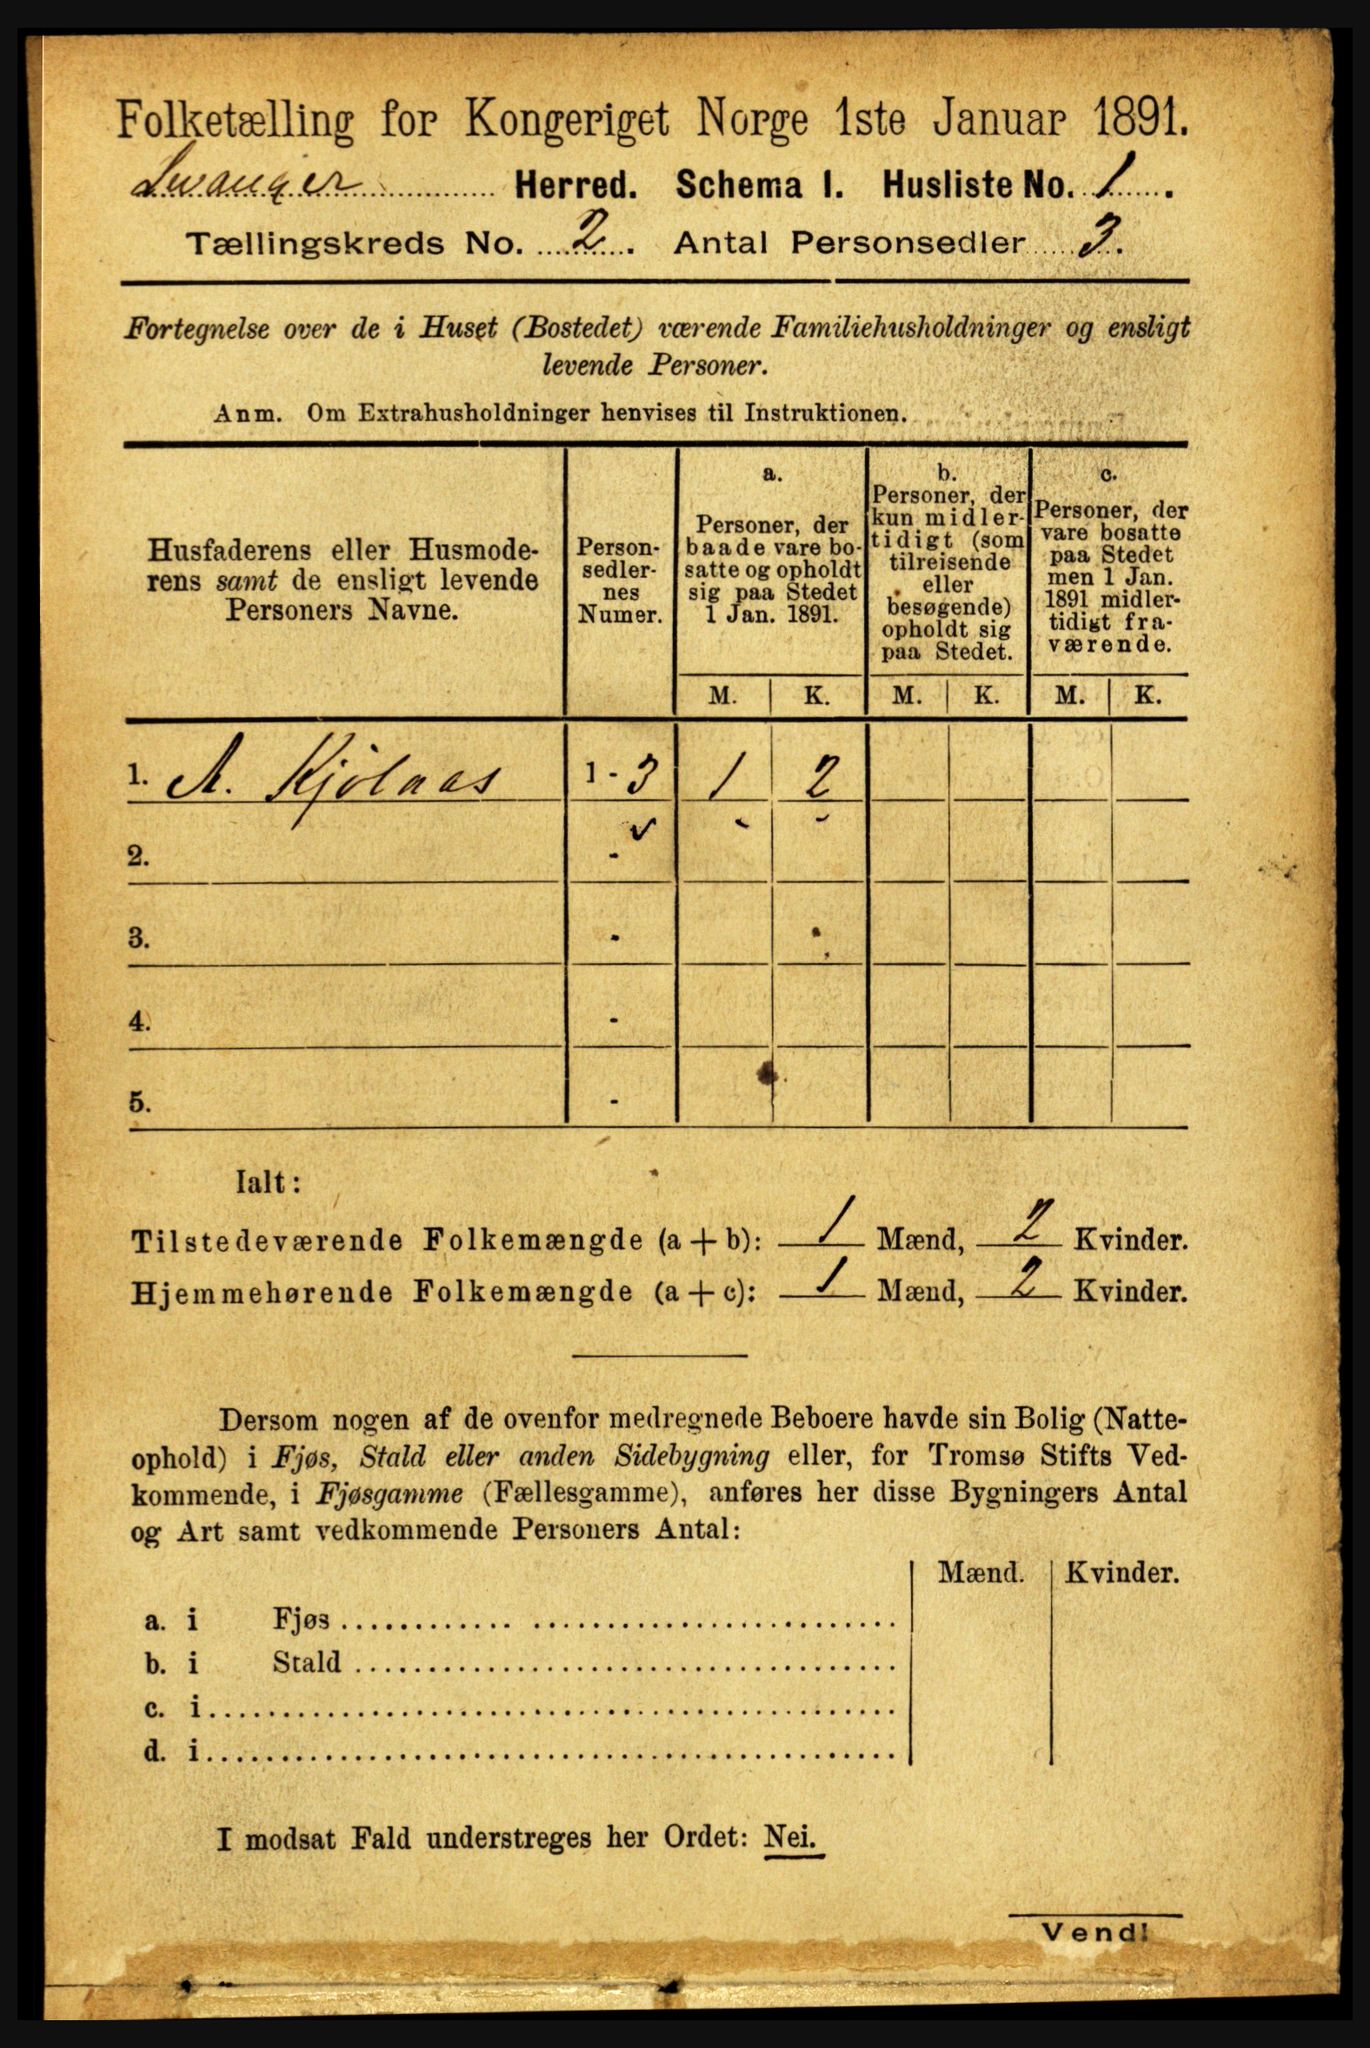 Folketælling for Kongeriget Norge 1ste Januar 1891.
Levanger Herred. Schema 1. Husliste No. 1.
Tællingskreds No. 2. Antal Personsedler 3.
Fortegnelse over de i Huset (Bostedet) værende Familiehusholdninger og ensligt
levende Personer.
Anm. Om Extrahusholdninger henvises til Instruktionen.
Husfaderens eller Husmode-
rens samt de ensligt levende
Personers Navne.
Person-
sedler-
nes
Numer.
a.
Personer, der
baade vare bo-
satte og opholdt
sig paa Stedet
1 Jan. 1891.
b.
Personer, der
kun midler-
tidigt (som
tilreisende
eller
besøgende)
opholdt sig
paa Stedet.
c.
Personer, der
vare bosatte
paa Stedet
men 1 Jan.
1891 midler-
tidigt fra-
værende.
M. K. M. K. M. K.
1. A. Kjølaas 1 - 3 1 2
2. -
3. -
4. -
5. -
Ialt:
Tilstedeværende Folkemængde (a + b): 1 Mænd, 2 Kvinder.
Hjemmehørende Folkemængde (a + c): 1 Mænd, 2 Kvinder.
Dersom nogen af de ovenfor medregnede Beboere havde sin Bolig (Natte-
ophold) i Fjøs, Stald eller anden Sidebygning eller, for Tromsø Stifts Ved-
kommende, i Fjøsgamme (Fællesgamme), anføres her disse Bygningers Antal
og Art samt vedkommende Personers Antal:
Mænd. Kvinder.
a. i Fjøs
b. i Stald
c. i
d. i
I modsat Fald understreges her Ordet: Nei.
Vend!